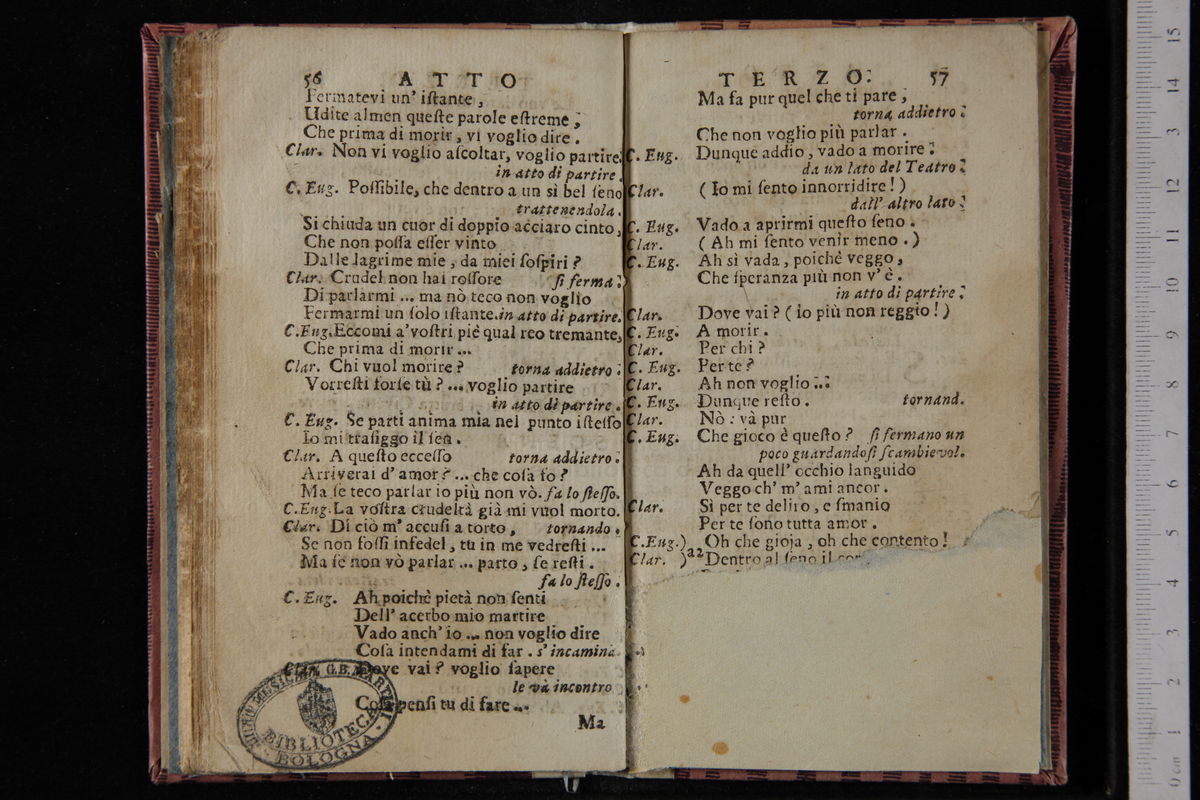 56 ATTO
Fermatevi un' iſtante,
Udite almen queſte parole eſtreme;
Che prima di morir, vi voglio dire.
Clar. Non vi voglio aſcoltar, voglio partire.
in atto di partire.
C. Eug. Poſſibile, che dentro a un sì bel ſeno
trattenendola.
Si chiuda un cuor di doppio acciaro cinto,
Che non poſſa eſſer vinto
Dalle lagrime mie, da miei ſoſpiri?
Clar. Crudel non hai roſſore ſi ferma.
Di parlarmi ... ma nò teco non voglio
Fermarmi un ſolo iſtante. in atto di partire.
C. Eug. Eccomi a' voſtri piè qual reo tremante,
Che prima di morir ...
Clar. Chi vuol morire? torna addietro:
Vorreſti forſe tù? ... voglio partire
in atto di partire.
C. Eug. Se parti anima mia nel punto iſteſſo
Io mi trafiggo il ſen.
Clar. A queſto ecceſſo torna addietro:
Arriverai d' amor? ... che coſa fo?
Ma ſe teco parlar io più non vò. fa lo ſteſſo.
C. Eug. La voſtra crudeltà già mi vuol morto.
Clar. Di ciò m' accuſi a torto, tornando.
Se non foſſi infedel, tu in me vedreſti ...
Ma ſe non vò parlar ... parto, ſe reſti.
fa lo ſteſſo.
C. Eug. Ah poichè pietà non ſenti
Dell' acerbo mio martire
Vado anch' io ... non voglio dire
Coſa intendami di far. s' incamina.
Dove vai? voglio ſapere
le và incontro
Coſa penſi tu di fare ...
Ma
BIBLIOTECA
BOLOGNA
TERZO. 57
Ma fa pur quel che ti pare;
torna addietro:
Che non voglio più parlar.
C. Eug. Dunque addio, vado a morire:
da un lato del Teatro:
Clar. (Io mi ſento innorridire!)
dall' altro lato:
C. Eug. Vado a aprirmi queſto ſeno.
Clar. (Ah mi ſento venir meno.)
C. Eug. Ah sì vada, poiché veggo,
Che ſperanza più non v' è.
in atto di partire:
Clar. Dove vai? (io più non reggio!)
C. Eug. A morir.
Clar. Per chi?
C. Eug. Per te?
Clar. Ah non voglio ...
C. Eug. Dunque reſto. tornand.
Clar. Nò: và pur
C. Eug. Che gioco è queſto? ſi fermano un
poco guardandoſi ſcambievol.
Ah da quell' occhio languido
Veggo ch' m' ami ancor.
Clar. Sì per te deliro, e ſmanio
Per te ſono tutta amor.
C. Eug.) Oh che gioja, oh che contento!
Clar. )a2 Dentro al ſeno il